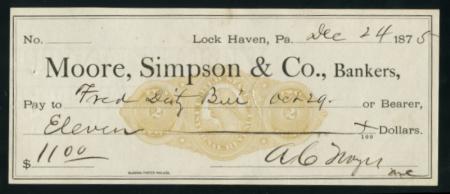 No. Lock Haven, Pa. Dec 24 1875
Moore, Simpson & Co., Bankers,
Pay to Fred Oct 29. or Bearer,
Eleven x/100 Dollars.
$ 11.00 A C